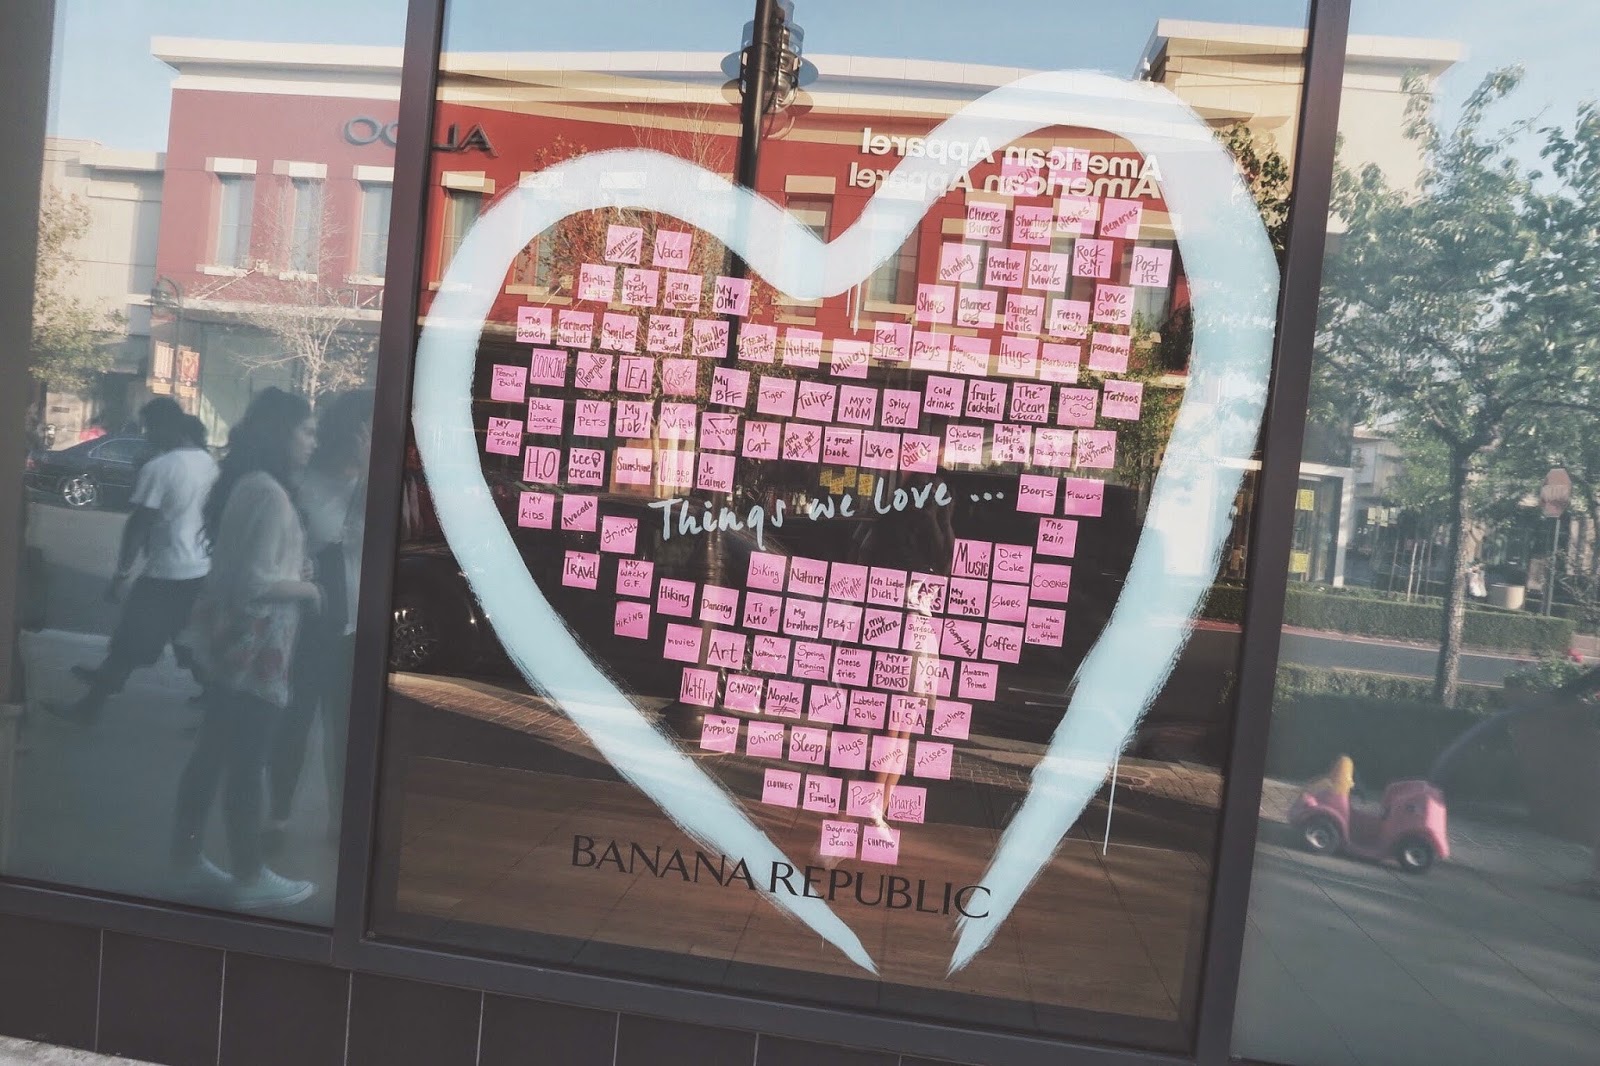 ALDO
American Apparel
American Apparel
Cheese Burgers
Shooting Stars
Wishes!
memories
Surprises
Vaca
Painting
Creative Minds
Scary Movies
Rock N Roll
Post its
a fresh start
sun glasses
My Omi
Shoes
Painted Toe Nails
Fresh Laundry
Love Songs
The Beach
Farmers Market
Smiles
Love at first sight
Vanilla Candles
Fuzzy Slippers
Nutella
Red Shoes
Pugs
Hugs
Starbucks
pancakes
Peanut Butter
COOKING
TEA
My BFF
Tiger
Tulips
MY MOM
Spicy Food
cold drinks
fruit cocktail
The Ocean
jewelry
Tattoos
MY Football TEAM
Black Licorice
MY PETS
My Job!
MY WIFEY
IN-N-OUT
MY Cat
a great book
Love
the Quiet
Chicken Tacos
Boyfriend
H2O
ice cream
Sunshine
Je t'aime
BOOTS
Flowers
Things we love ...
MY KIDS
Avocado
Friends
The Rain
TRAVEL
MY WACKY G.F.
biking
Nature
Ich Liebe Dich!
MUSIC
Diet Coke
COOKIES
HIKING
Hiking
Dancing
TI AMO
My brothers
PB&J
my camera
My Surface Pro 2
MY MOM & DAD
Disneyland
Shoes
Coffee
movies
Art
chili cheese fries
MY PADDLE BOARD
YOGA
Amazon Prime
Netflix
CANDY
Nopales
Lobster Rolls
The U.S.A
recycling
PUPPIES
Chinos
Sleep
Hugs
running
Kisses
CLOTHES
My Family
Pizza
Sharks!
Boyfriend Jeans
SHOPPING
BANANA REPUBLIC